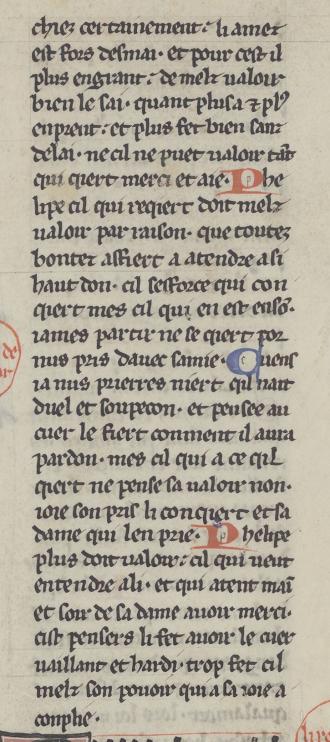 chiez certainement: li amez
est fors desmai· et pour cest il
plus engrant: de melz valoir
bien le sai· quant plus a ⁊ pl⁹
enprent: et plus fet bien sanz
delai· ne cil ne puet valoir tāt
qui quiert merci et aie· Phe
lipe cil qui reqiert doit melz
valoir par raison· que toutez
bontez affiert a atendre a si
haut don· cil sefforce qui con
quiert mes cil qui en est ensō·
iames partir ne se qiert por
nus pris davec samie· Cuens
ia nus puerres niert qil nait
duel et soupecon· et pensee au
cuer le fiert conment il aura
pardon· mes cil qui a ce qil
qiert ne pense sa valoir non·
ioie son pris li conqiert et sa
dame qui len prie· Phelipe
plus doit valoir: cil qui veut
entendre a li· et qui atent mai
et soir de sa dame avoir merci·
cist pensers li fet avoir le cuer
vaillant et hardi· trop fet cil
melz son pouoir qui a sa ioie a
conplie·